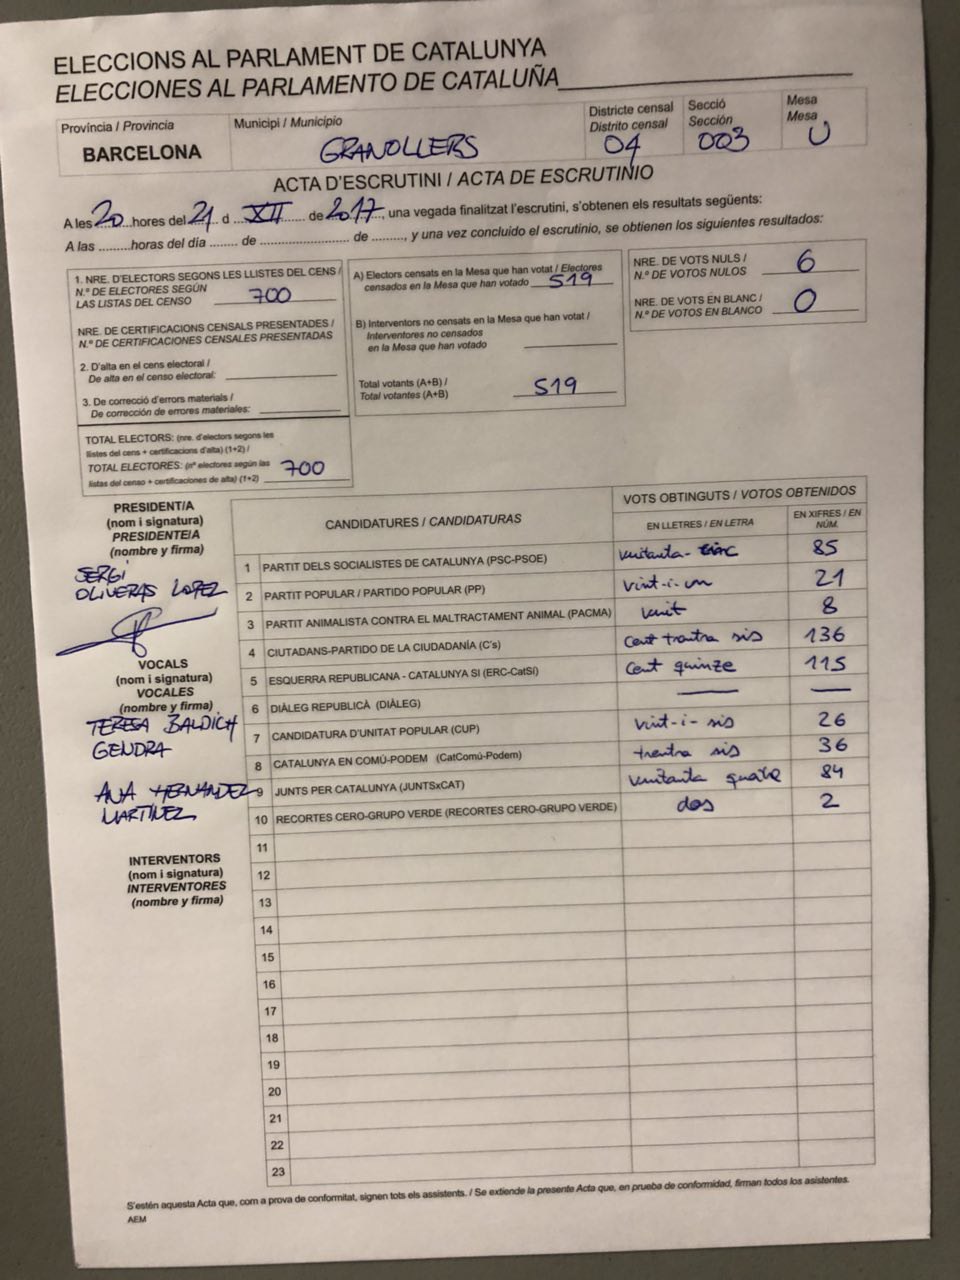 ELECCIONS AL PARLAMENT DE CATALUNYA
ELECCIONES AL PARLAMENTO DE CATALUÑA
Província / Provincia
BARCELONA
Municipi / Municipio
GRANOLLERS
Districte censal
Distrito censal
04
Secció
Sección
003
Mesa
Mesa
U
ACTA D'ESCRUTINI / ACTA DE ESCRUTINIO
A les 20 hores del 21 d XII de 2017, una vegada finalitzat l'escrutini, s'obtenen els resultats següents:
A las ......... horas del día ........ de ........................ de ........., y una vez concluido el escrutinio, se obtienen los siguientes resultados:
1. NRE. D'ELECTORS SEGONS LES LLISTES DEL CENS /
N.º DE ELECTORES SEGÚN
LAS LISTAS DEL CENSO 700
NRE. DE CERTIFICACIONS CENSALS PRESENTADES /
N.º DE CERTIFICACIONES CENSALES PRESENTADAS
2. D'alta en el cens electoral /
De alta en el censo electoral:
3. De correcció d'errors materials /
De corrección de errores materiales:
TOTAL ELECTORS: (nre. d'electors segons les
llistes del cens + certificacions d'alta) (1+2) /
TOTAL ELECTORES: (nº electores según las
listas del censo + certificaciones de alta) (1+2) 700
A) Electors censats en la Mesa que han votat / Electores
censados en la Mesa que han votado 519
B) Interventors no censats en la Mesa que han votat /
Interventores no censados
en la Mesa que han votado
Total votants (A+B) /
Total votantes (A+B) 519
NRE. DE VOTS NULS /
N.º DE VOTOS NULOS 6
NRE. DE VOTS EN BLANC /
N.º DE VOTOS EN BLANCO 0
PRESIDENT/A
(nom i signatura)
PRESIDENTE/A
(nombre y firma)
SERGI
OLIVERAS LOPEZ
VOCALS
(nom i signatura)
VOCALES
(nombre y firma)
TERESA BALDICH
GENDRA
ANA HERNANDEZ
MARTINEZ
INTERVENTORS
(nom i signatura)
INTERVENTORES
(nombre y firma)
CANDIDATURES / CANDIDATURAS
VOTS OBTINGUTS / VOTOS OBTENIDOS
EN LLETRES / EN LETRA
EN XIFRES / EN NÚM.
1 PARTIT DELS SOCIALISTES DE CATALUNYA (PSC-PSOE) vuitanta-cinc 85
2 PARTIT POPULAR / PARTIDO POPULAR (PP) vint-i-un 21
3 PARTIT ANIMALISTA CONTRA EL MALTRACTAMENT ANIMAL (PACMA) vuit 8
4 CIUTADANS-PARTIDO DE LA CIUDADANÍA (C's) cent trantra sis 136
5 ESQUERRA REPUBLICANA - CATALUNYA SI (ERC-CatSí) cent quinze 115
6 DIÀLEG REPUBLICÀ (DIÀLEG) — —
7 CANDIDATURA D'UNITAT POPULAR (CUP) vint-i-sis 26
8 CATALUNYA EN COMÚ-PODEM (CatComú-Podem) trentra sis 36
9 JUNTS PER CATALUNYA (JUNTSxCAT) vuitanta quatre 84
10 RECORTES CERO-GRUPO VERDE (RECORTES CERO-GRUPO VERDE) dos 2
11
12
13
14
15
16
17
18
19
20
21
22
23
S'estén aquesta Acta que, com a prova de conformitat, signen tots els assistents. / Se extiende la presente Acta que, en prueba de conformidad, firman todos los asistentes.
AEM